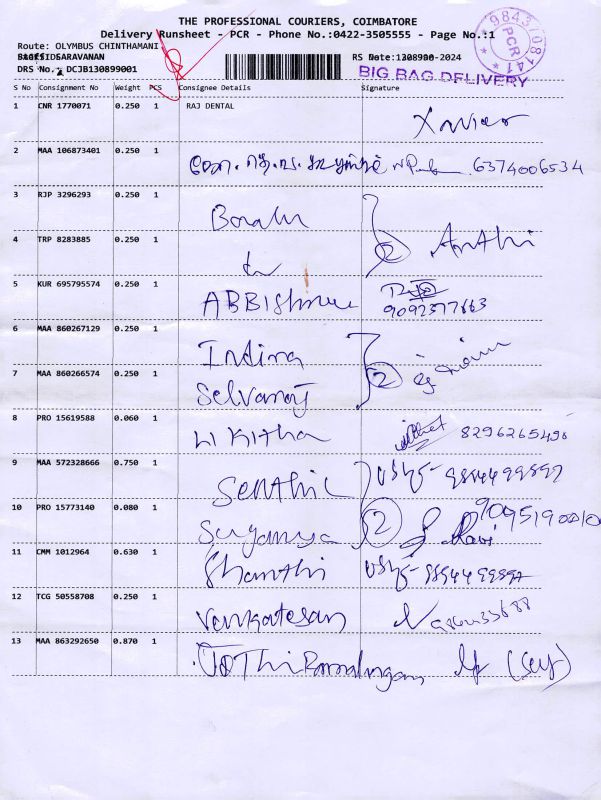 THE PROFESSIONAL COURIERS, COIMBATORE
Delivery Runsheet - PCR - Phone No.:0422-3505555 - Page No.:1
Route: OLYMBUS CHINTHAMANI
SARAVANAN
DRS No.: DCJB130899001
BIG BAG DELIVERY
9843708141
PCR
S No Consignment No Weight PCS Consignee Details Signature
1 CNR 1770071 0.250 1 RAJ DENTAL Xavier
2 MAA 106873401 0.250 1 6374006534
3 RJP 3296293 0.250 1
4 TRP 8283885 0.250 1 2 Anthi
5 KUR 695795574 0.250 1 9092377663
6 MAA 860267129 0.250 1 Indira
7 MAA 860266574 0.250 1 Selvaraj 2
8 PRO 15619588 0.060 1 Likitha 8296265490
9 MAA 572328666 0.750 1 Senthil
10 PRO 15773140 0.080 1 Suganya 2 Ravi
11 CMM 1012964 0.630 1 Shanthi
12 TCG 50558708 0.250 1 Venkatesan
13 MAA 863292650 0.870 1 JOThi Ramalingam (Self)